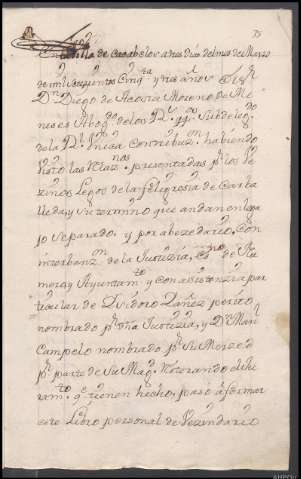 75
En la Villa de Cacabelos a tres dias del mes de Marzo
de mil setezientos Cinqta y tres años el Sr
Dn Diego de Acosta Moreno de Me
neses Abogdo de los Rs Subdelegdo
de la Rl Unica Contribuzn habiendo
visto las Relaznes presentadas pr los ve
zinos Legos de la feligresia de Carba
lleda, y su termino que andan en lega
jo separado, y por abezedario, con
interbenzn de la Justizia, de Nu
mero, y Ayuntamto y con asistenzia par
ticular de Ysidoro Yañez perito
nombrado pr dha Justizia, y Dn Manl
Campelo nombrado pr Su Merzed
pr parte de Su Magd
ramto q tienen hecho, paso a formar
este Libro personal de Vezindario